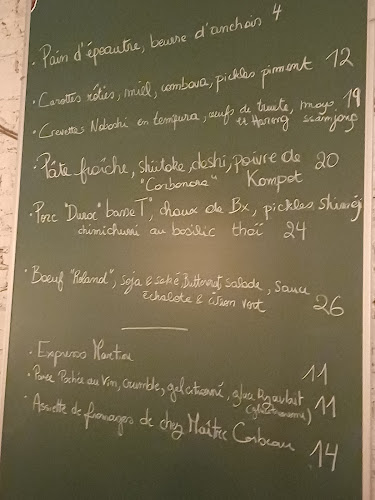 · Pain d'épeautre, beurre d'anchois 4
· Carottes rôties, miel, combava, pickles piment 12
· Crevettes Nobashi en tempura, œufs de truite, mayo 19
et Hareng ssamjang
· Pâte fraîche, shiitake, dashi, poivre de 20
"Carbonara" Kampot
· Porc "Duroc" basse T°, choux de Bx, pickles shimeji
chimichurri au basilic thaï 24
· Boeuf "Roland", soja & saké Butternut, salade, sauce
échalote & citron vert 26
· Espresso Martini 11
· Poire Pochée au vin, crumble, gel citronné, glace 11
· Assiette de fromages de chez Maître Corbeau 14